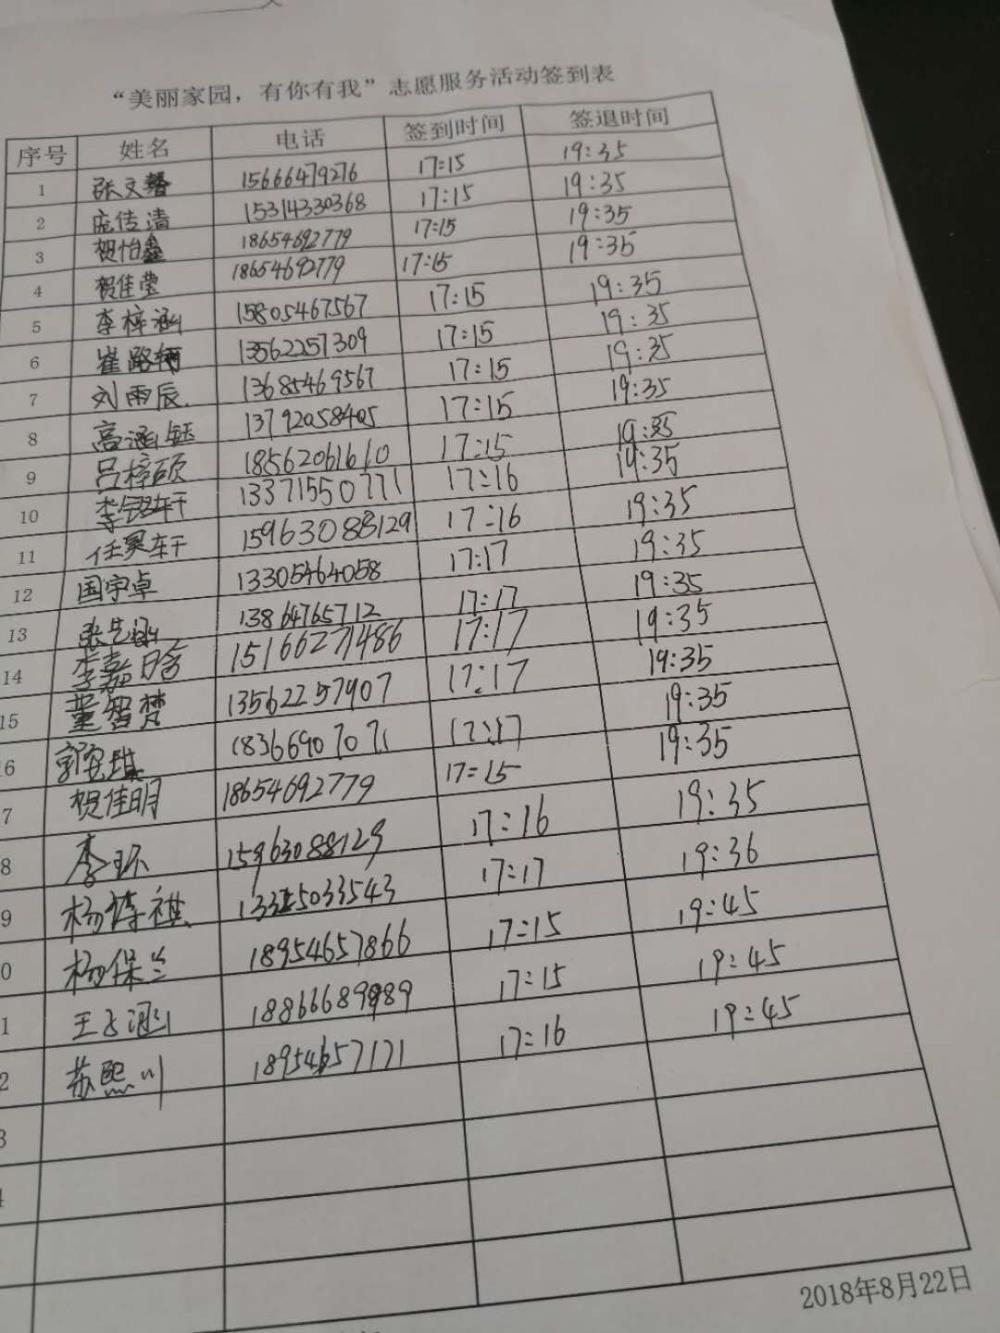 “美丽家园，有你有我”志愿服务活动签到表
序号 姓名 电话 签到时间 签退时间
1 张文馨 15666479276 17:15 19:35
2 庞传清 15314330368 17:15 19:35
3 贺怡鑫 18654692779 17:15 19:35
4 贺佳莹 18654692779 17:15 19:35
5 李梓涵 15805467567 17:15 19:35
6 崔路 13562257309 17:15 19:35
7 刘雨辰 13685469567 17:15 19:35
8 高涵钰 13792058405 17:15 19:35
9 吕梓硕 18562061610 17:15 19:35
10 李铭轩 13371550771 17:16 19:35
11 任昊轩 15963088129 17:16 19:35
12 国宇卓 13305464058 17:17 19:35
13 张艺涵 13864765712 17:17 19:35
14 李嘉晗 15166271486 17:17 19:35
15 董智梵 13562257907 17:17 19:35
6 郭宛琪 18366907071 17:17 19:35
7 贺佳明 18654692779 17:15 19:35
8 李环 15963088129 17:16 19:35
9 杨诗祺 17:17 19:36
0 杨保兰 18954657866 17:15 19:45
1 王子涵 18866689989 17:15 19:45
2 苏熙川 18954657171 17:16 19:45
3
4
2018年8月22日